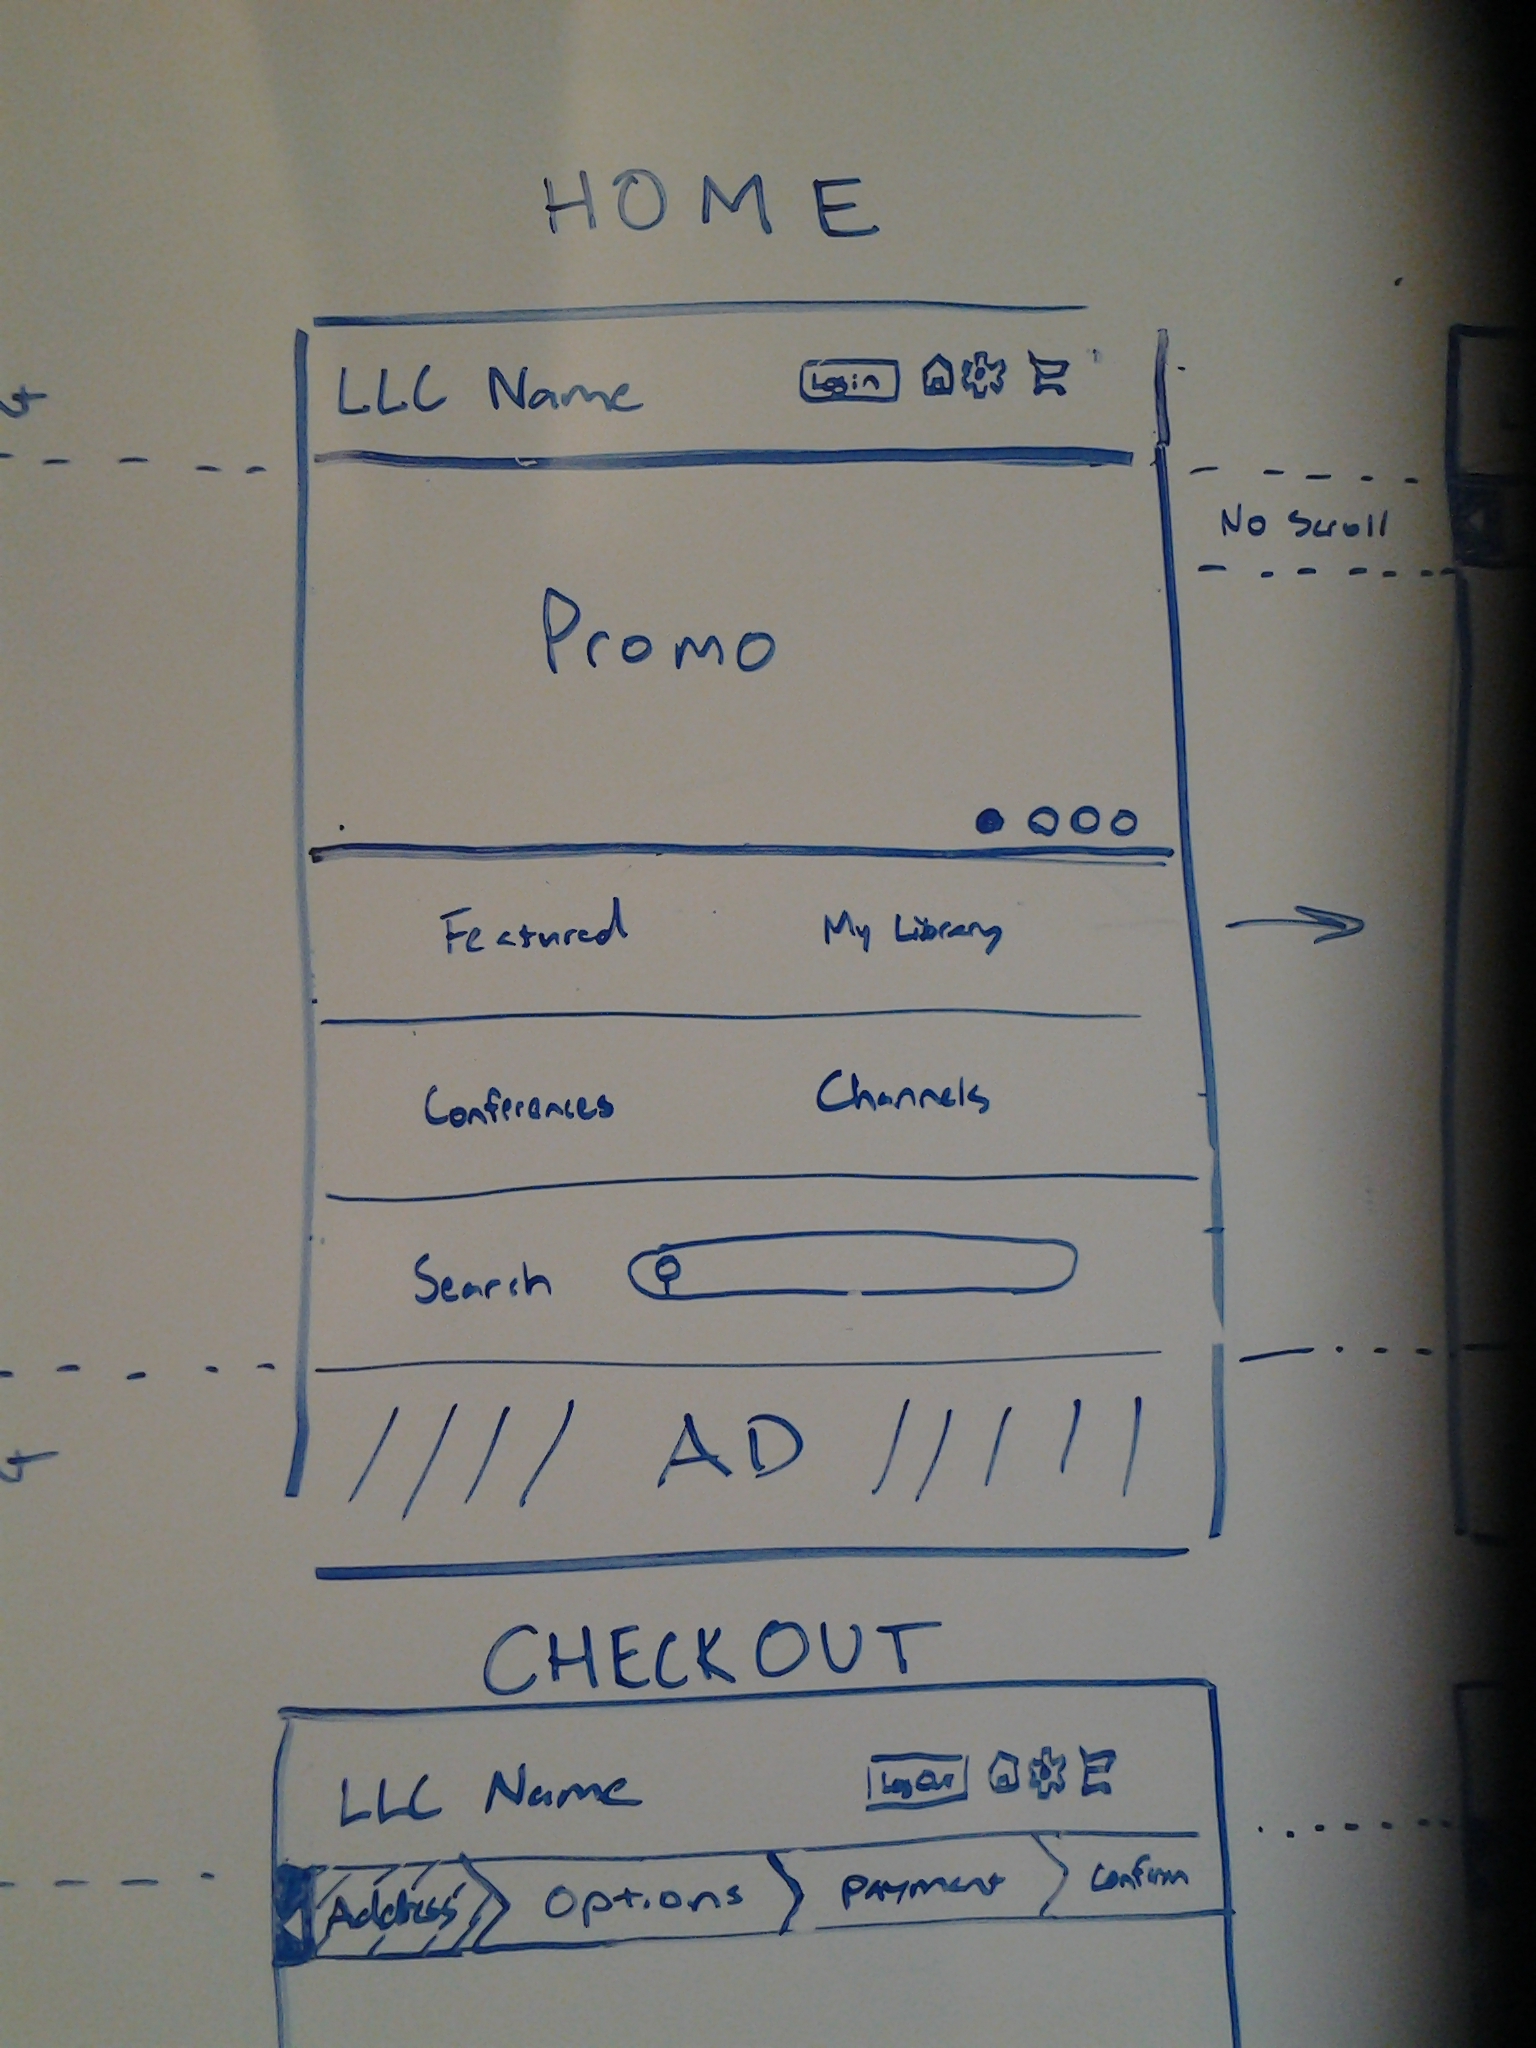 HOME
LLC Name Login
No Scroll
Promo
Featured My Library
Conferences Channels
Search
AD
CHECKOUT
LLC Name Log Out
Address Options Payment Confirm